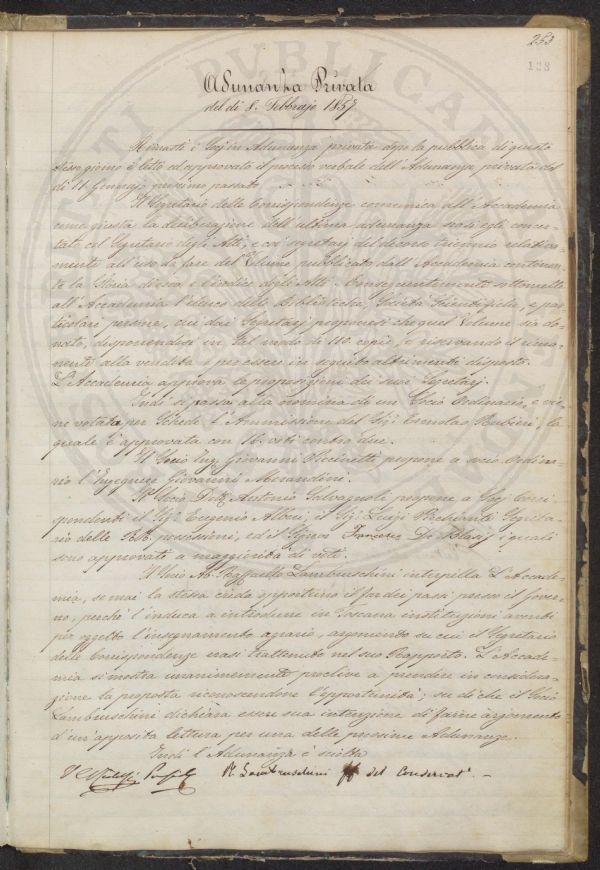 253
123
Adunanza Privata
del dì 8. Febbrajo 1857
Rimasti i Socj in Adunanza privata dopo la pubblica di questo
stesso giorno è letto ed approvato il processo verbale dell'Adunanza privata del
dì 11 Gennajo prossimo passato.
Il Segretario delle Corrispondenze comunica all'Accademia
come giusta la deliberazione dell'ultima adunanza siasi egli concer-
tato col Segretario degli Atti, e coi segretarj del decorso triennio relativa-
mente all'uso da fare del Volume pubblicato dall'Accademia contenen-
te la Storia di essa e l'indice degli Atti. Conseguentemente sottomette
all'Accademia l'elenco delle Biblioteche, Società Scientifiche, e par-
ticolari persone, cui dai Segretarj proponesi che quel Volume sia do-
nato, disponendosi in tal modo di 110 copie, e riservando il rima-
nente alla vendita o per essere in seguito altrimenti disposto.
L'Accademia approva le proposizioni dei suoi Segretarj.
Indi si passa alla nomina di un Socio Ordinario, e vie-
ne votata per Schede l'Ammissione del Sig. Ermolao Rubieri, la
quale è approvata con 16 voti contro due.
Il Socio Ing. Giovanni propone a socio Ordina-
rio l'Ingegnere Giovanni Morandini.
Il Socio Dott. Antonio Salvagnoli propone a Socj Corri-
spondenti il Sig. Eugenio Albèri, il Sig. Luigi Segreta-
rio delle RR. possessioni, ed il Signor Francesco De Blasiis i quali
sono approvati a maggiorità di voti.
Il Socio Ab. Raffaello Lambruschini interpella l'Accade-
mia, se mai la stessa creda opportuno il far dei passi presso il Gover-
no, perchè l'induca a introdurre in Toscana instituzioni aventi
per oggetto l'insegnamento agrario, argomento su cui il Segretario
delle Corrispondenze erasi trattenuto nel suo Rapporto. L'Accade-
mia si mostra unanimemente proclive a prendere in considera-
zione la proposta riconoscendone l'opportunità; su di che il Socio
Lambruschini dichiara essere sua intenzione di farne argomento
d'un'apposita lettura per una delle prossime Adunanze.
Indi l'Adunanza è sciolta
R. Lambruschini ff del Conservat.